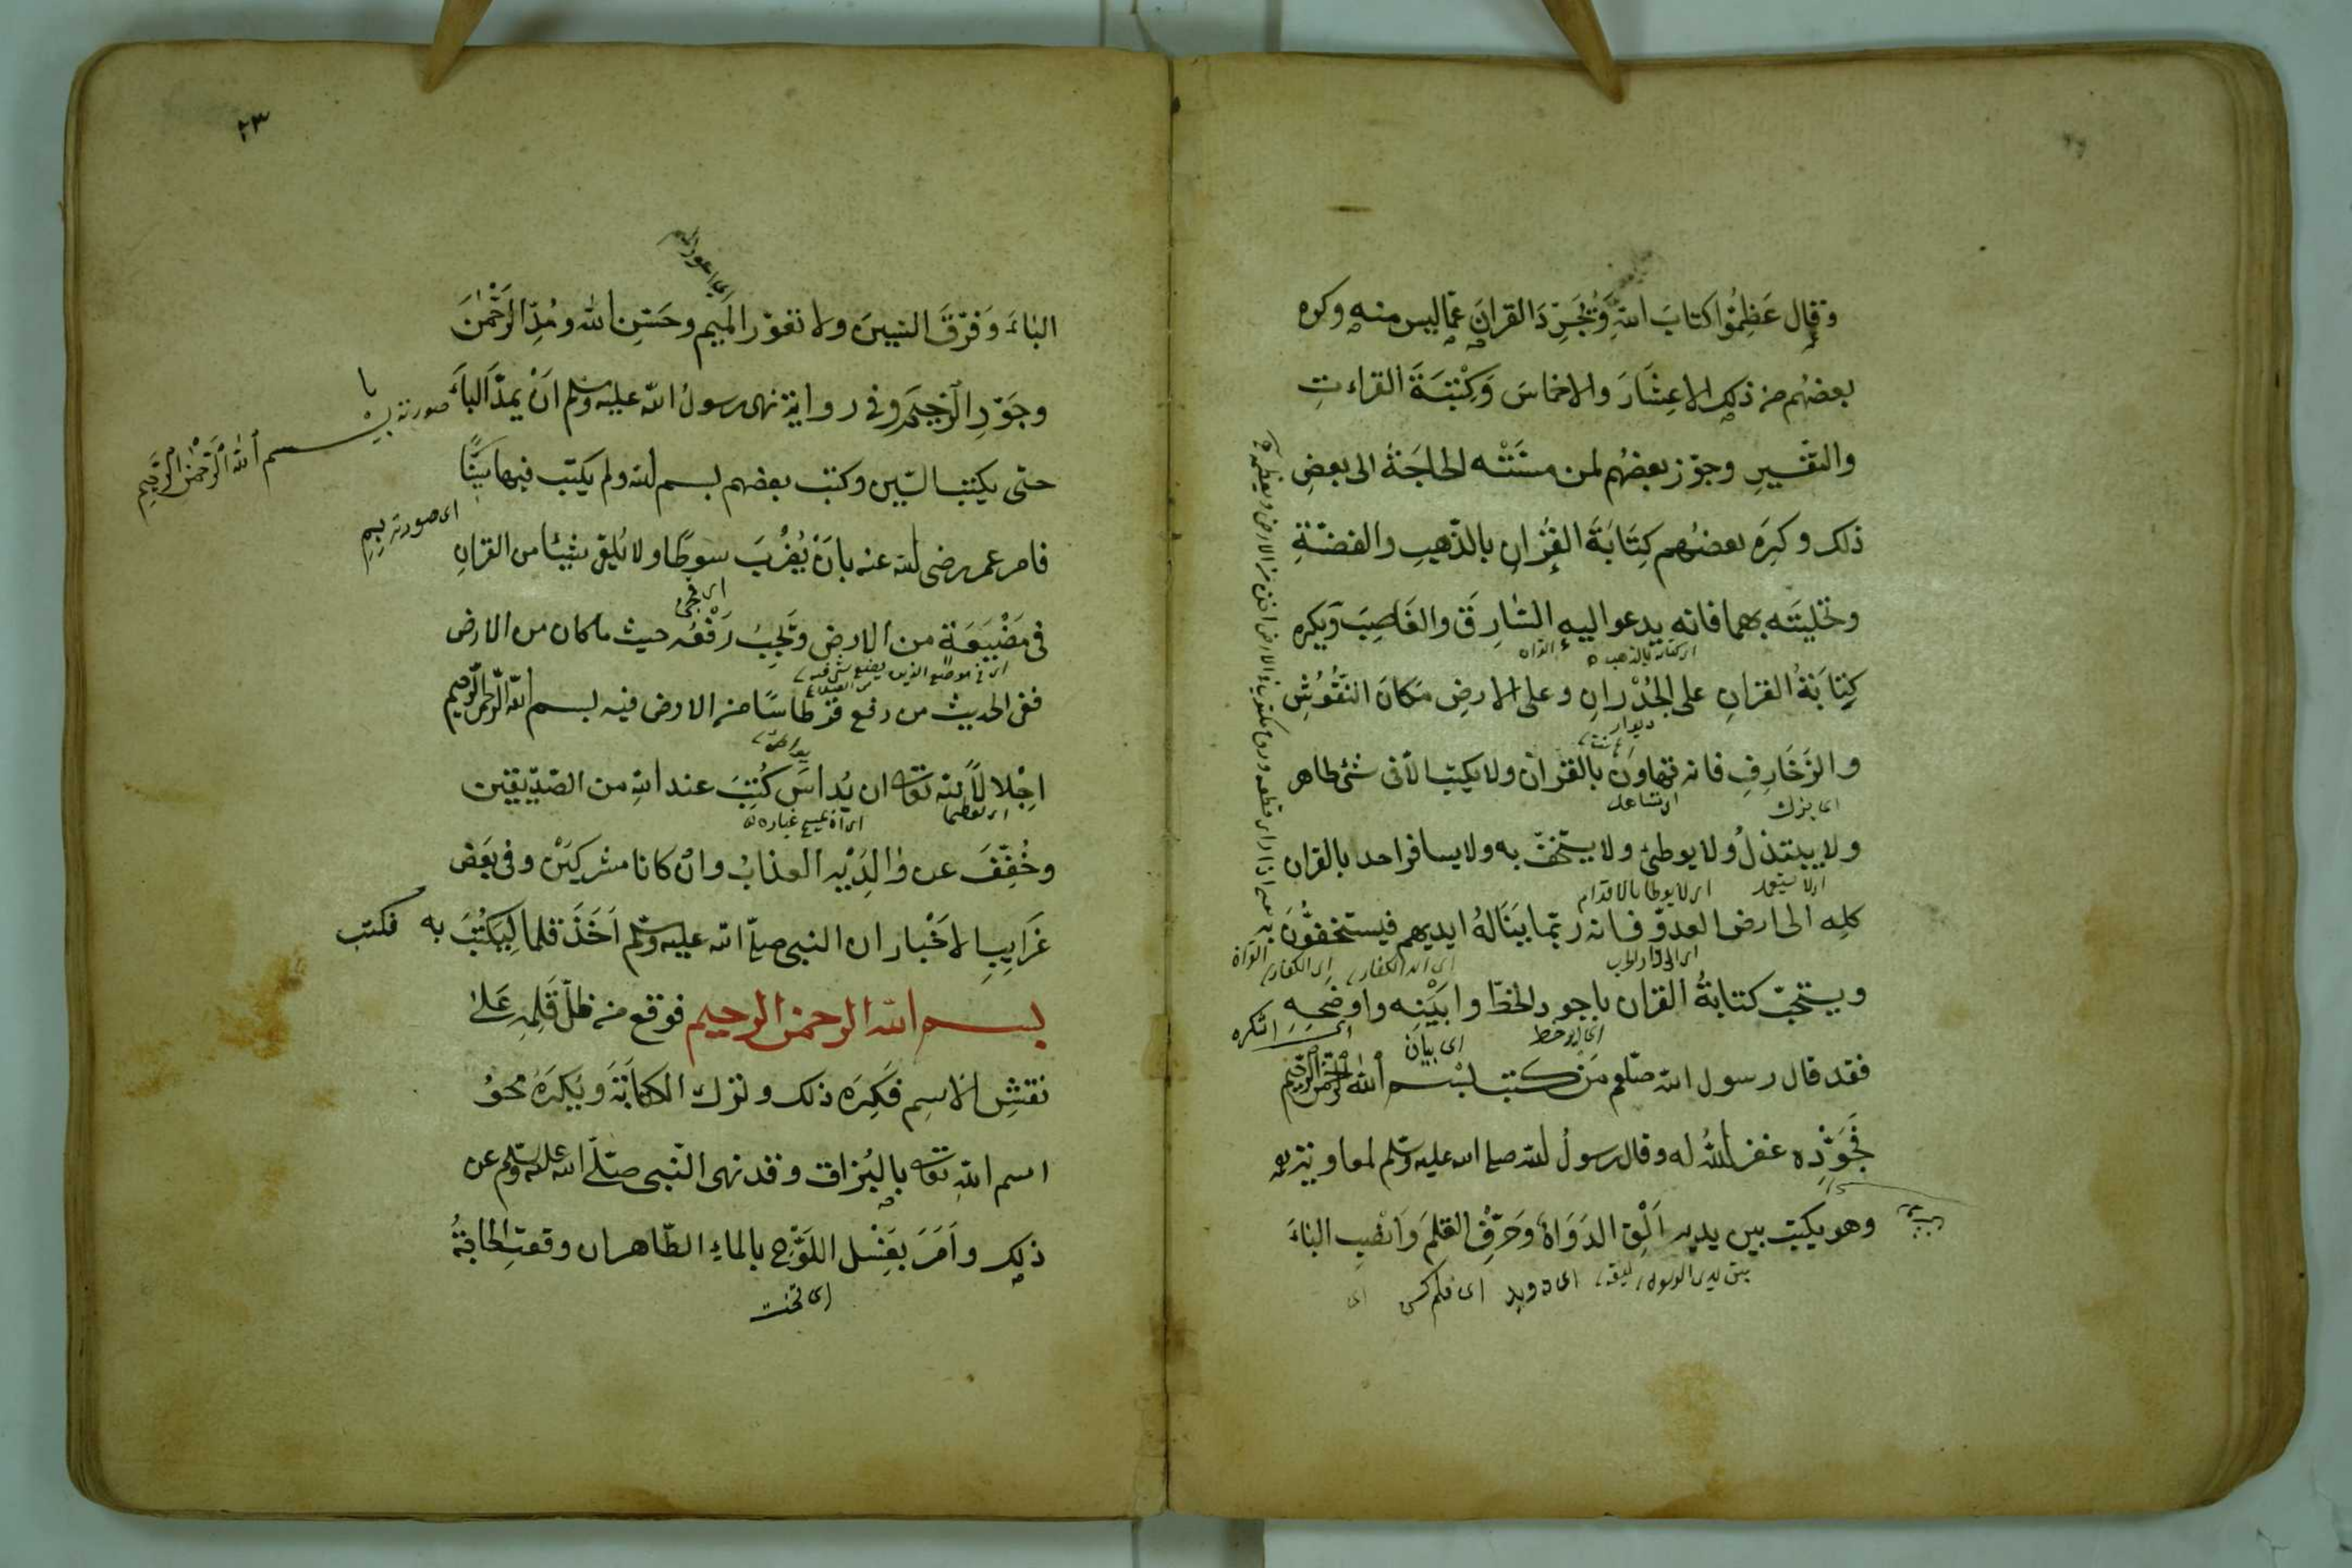 وقال عَظِّمُوا كتابَ اللهِ وَنُجَرِّدَ القرانَ عمّا ليس منه وكره
بعضُهم من ذلك الاعشَارَ والاخماسَ وَكِتْبَةَ القراءتِ
والتفسيرِ وجوّز بعضُهم لمن مسَّتْه الحاجَةُ الى بعضِ
ذلك وكَرِهَ بعضُهم كِتَابَةَ القُرْانِ بالذّهبِ والفضّةِ
وتحليتَه بهما فانه يدعو اليه السّارِقَ والغَاصِبَ ويكره
اى كتابة بالذهب
القران
كِتابَةُ القرانِ على الجُدْرانِ وعلى الارضِ مَكانَ النّقُوْشِ
ديوار
والزّخَارِفِ فانه تهاوَن بالقرْانِ ولا يكتب الّا فى شئ طاهر
اى بزك
اى تساهل
ولا يبتذلُ ولا يوطئ ولا يستخفّ به ولا يسافر احد بالقران
اى لا يستعمل
اى لا يوطا بالاقدام
كلِه الى ارض العدوّ فانه ربّما ينَالهُ ايديهم فيستخفُّونَ به
اى الى دار الحرب
اى ايدى الكفار
اى الكفار
القران
ويستحبّ كتابةُ القران باجود الخطّ وابيَنِه واوضحِه
اى ايو خط
اى بيان
اى اشكره
فقد قال رسول الله صلعم مَن كتب بسم الله الرّحمن الرّحيم
فجَوّدَه غفر اللهُ له وقال رسولُ الله صلى الله عليه وسلم لمعاوية
وهو يكتب بين يديه اَلِقِ الدَوَاةَ وَحَرِّفِ القلمَ وَانْصِبِ الباءَ
بين يدى الرسول
ليقه
اى دويد
اى قلم كس
اى
٢٣
الباءَ وَفرّقَ السّينَ ولا تعوّر الميم وحَسِّن الله ومُدِّ الرّحْمٰنَ
وجَوّدِ الرّحيمَ وفى رواية نهى رسولُ الله عليه وسلم اَنْ يمدّ الباءَ
صورته
بسم الله الرّحمٰن الرّحيم
حتى يكتب السّين وكتب بعضهم بسم الله ولم يكتب فيها سِيْنًا
اى صورته بِمِ
فامر عمر رضى الله عنه بانْ يُضْرَبَ سوطًا ولا يُلقى شيئا من القرانِ
فى مَضْيَعَةٍ من الارضِ وتجِبُ رَفْعُه حيث ما كان من الارض
اى فى موضع الذى يضيع شئ فيه
ففى الحديث من رفع قرطاسًا من الارض فيه بسم الله الرّحمن الرّحيم
اجْلالًا لله تعالى ان يُداسَ كُتِبَ عند الله من الصّدّيقين
اى تعظيما
وخُفِّفَ عن وٰالِدَيْهِ العذابُ وانْ كانا مشركَيْن وفى بَعْض
غَرَايبِ الاَخْبارِ ان النبى صلى الله عليه وسلم اَخَذَ قلما لِيَكْتُبَ به فكتب
بسم الله الرحمن الرحيم فوقع من ظلّ قَلمِهِ عَلىٰ
نقشِ الاسِم فَكِرَه ذلك وترك الكتابَةَ وَيُكرَهُ محوُ
اسم اللهِ تعالى بالبُزاق وقد نهى النّبى صلّى الله عليه وسلم عن
ذلك واَمَرَ بغَسْل اللَوْحِ بالماءِ الطّاهر ان وقعتِ الحاجةُ
اى تخت